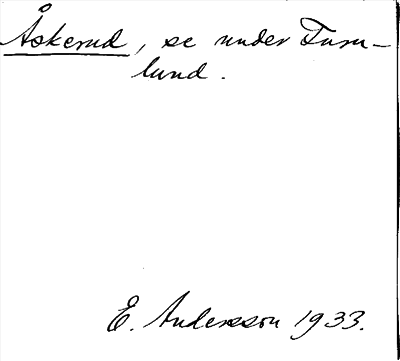 Åskerud, se under Turn-
lund.
E. Andersson 1933.